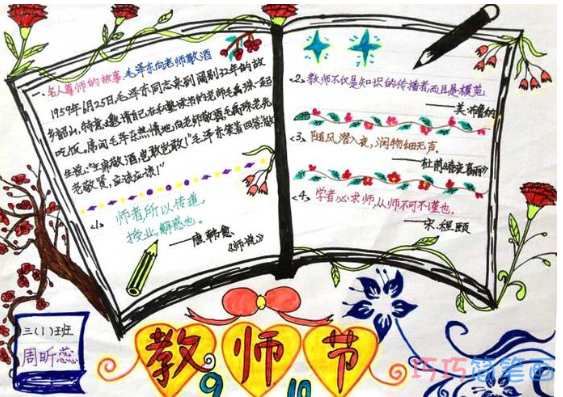 一、名人尊师的故事.毛泽东向老师敬酒
1959年6月25日,毛泽东同志来到阔别32年的故
乡韶山,特意邀请自己在私塾读书的老师毛禹珠一起
吃饭。席间毛泽东热情地向老师敬酒,毛禹珠老先
生说:"主席敬酒,岂敢岂敢!"毛泽东笑着回答:"敬
老敬贤,应该应该!"
<1>
师者,所以传道,
授业,解惑也。
——唐.韩愈
《师说》
<2>、教师不仅是知识的传播者,而且是模范.
——美.布鲁纳
<3>、随风潜入夜,润物细无声.
——杜甫《春夜喜雨》
<4>、学者必求师,从师不可不谨也.
——宋.程颐
三(1)班
周昕蕊
教师节
9 10
巧巧简笔画